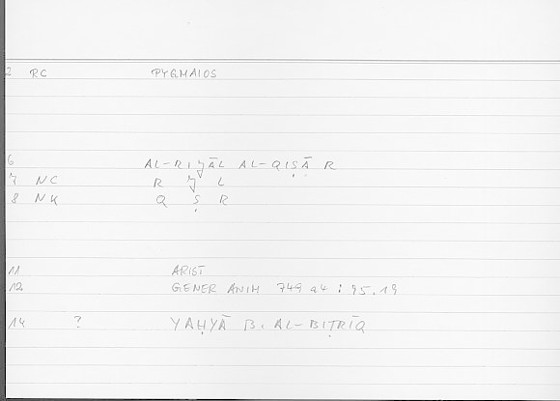 2 RC PYGMAIOS
6 AL-RIǦĀL AL-QIṢĀR
7 NC R Ǧ L
8 NK Q Ṣ R
11 ARIST
12 GENER ANIM 749 a4 : 95.19
14 ? YAḤYĀ B. AL-BIṬRĪQ